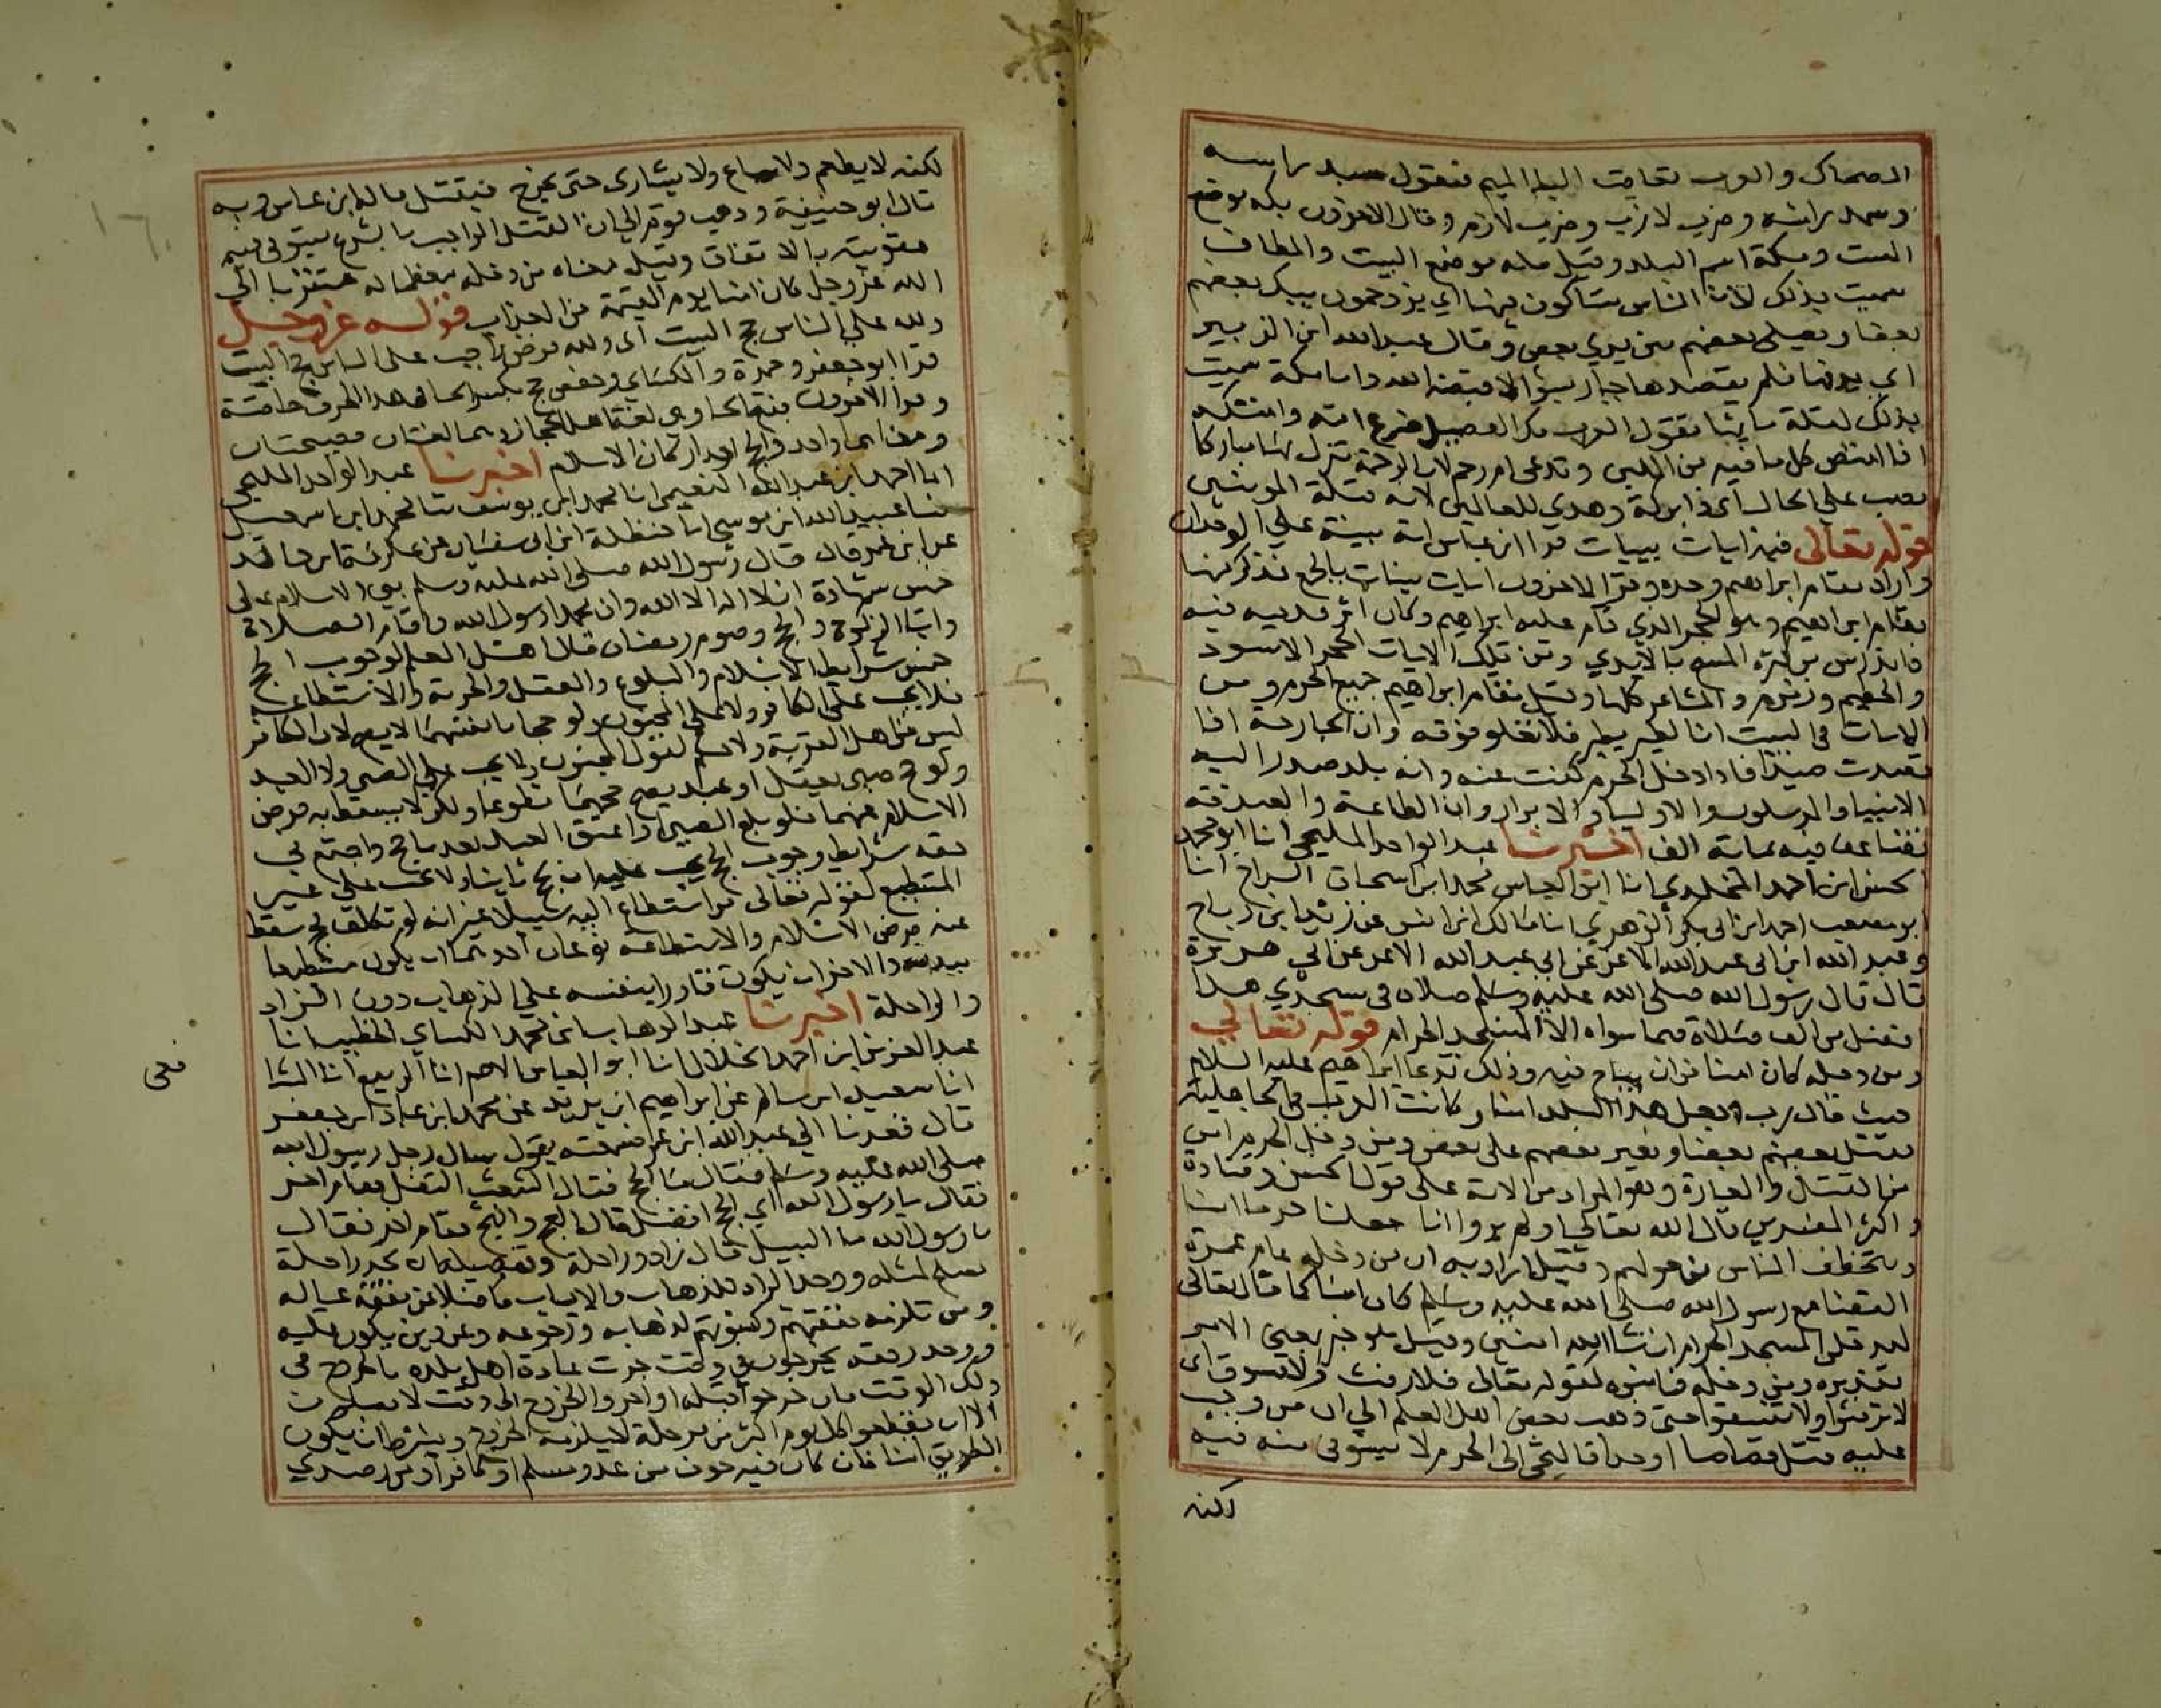 الضحاك والعرب تعاقب الباء الميم فتقول سبد راسه
وسمد راسه وضرب لازب وضرب لازم وقال الاخرون بكه موضع
البيت ومكة اسم البلد وقيل بكه موضع البيت والمطاف
سميت بذلك لان الناس يتباكون فيها اي يزدحمون يبك بعضهم
بعضا ويصلي بعضهم بين يدي بعض وقال عبد الله ابن الزبير
اي يدقها فلم يقصدها جبار بسؤ الا قصمه الله واما مكة سميت
بذلك لقلة مائها تقول العرب مك الفصيل ضرع امه وامتكه
اذا امتص كل ما فيه من اللبن وتدعى ام رحم لان الرحمة تنزل بها مباركا
نصب على الحال اي ذا بركة وهدي للعالمين لانه قبلة المومنين
قوله تعالى فيه ايات بينات قرا ابن عباس اية بينة على الوحدان
واراد مقام ابراهيم وحده وقرا الاخرون ايات بينات بالجمع فذكر منها
مقام ابراهيم وهو الحجر الذي قام عليه ابراهيم وكان اثر قدميه فيه
فاندرس من كثرة المسح بالايدي ومن تلك الايات الحجر الاسود
والحطيم وزمزم والمشاعر كلها وقيل مقام ابراهيم جميع الحرم ومن
الايات في البيت ان الطير يطير فلا تعلو فوقه وان الجارحة اذا
قصدت صيدا فاذا دخل الحرم كفت عنه وانه بلد صدر اليه
الانبيا والمرسلون والاوليا والابرار وان الطاعة والصدقة
تضاعف فيه بماية الف اخبرنا عبد الواحد المليحي انا ابو محمد
الحسن ابن احمد المخلدي انا ابو العباس محمد ابن اسحاق السراج انا
ابو مصعب احمد ابن ابي بكر الزهري انا مالك ابن انس عن زيد ابن رباح
وعبد الله ابن ابي عبد الله الاغر عن ابي عبد الله الاغر عن ابي هريرة
قال قال رسول الله صلى الله عليه وسلم صلاة في مسجدي هذا
افضل من الف صلاة فيما سواه الا المسجد الحرام قوله تعالى
ومن دخله كان امنا من ان يهاج فيه وذلك بدعا ابراهيم عليه السلام
حيث قال رب اجعل هذا البلد امنا وكانت العرب في الجاهلية
يقتل بعضهم بعضا ويغير بعضهم على بعض ومن دخل الحرم امن
من القتل والغارة وهو المراد من الاية على قول الحسن وقتادة
واكثر المفسرين قال الله تعالى اولم يروا انا جعلنا حرما امنا
ويتخطف الناس من حولهم وقيل اراد به ان من دخله عام عمرة
القضا مع رسول الله صلى الله عليه وسلم كان امنا كما قال تعالى
لتدخلن المسجد الحرام ان شا الله امنين وقيل هو خبر بمعنى الامر
تقديره ومن دخله فامنوه لقوله تعالى فلا رفث ولا فسوق اي
لا ترفثوا ولا تفسقوا حتى ذهب بعض اهل العلم الى ان من وجب
عليه قتل قصاصا او حدا فالتجى الى الحرم لا يستوفى منه فيه
لكنه
لكنه لا يطعم ولا يباع ولا يشارى حتى يخرج فيقتل قاله ابن عباس وبه
قال ابو حنيفة وذهب قوم الى ان القتل الواجب بالشرع يستوفى فيه
عقوبته بالاتفاق وقيل معناه من دخله معظما له متقربا الى
الله عز وجل كان امنا يوم القيمة من العذاب قوله عز وجل
ولله على الناس حج البيت اي ولله فرض واجب على الناس حج البيت
قرا ابو جعفر وحمزة والكساي وحفص حج بكسر الحا في هذا الحرف خاصة
وقرا الاخرون بفتح الحا وهي لغة اهل الحجاز وهما لغتان فصيحتان
ومعناهما واحد والحج احد اركان الاسلام اخبرنا عبد الواحد المليحي
انا احمد ابن عبد الله النعيمي انا محمد ابن يوسف ثنا محمد ابن اسمعيل
ثنا عبيد الله ابن موسى انا حنظلة ابن ابي سفيان عن عكرمة ابن خالد
عن ابن عمر قال قال رسول الله صلى الله عليه وسلم بني الاسلام على
خمس شهادة ان لا اله الا الله وان محمدا رسول الله واقام الصلاة
وايتا الزكوة والحج وصوم رمضان قال اهل العلم لوجوب الحج
خمس شرايط الاسلام والبلوغ والعقل والحرية والاستطاعة
فلا يجب على الكافر ولا على المجنون ولو حجا بانفسهما لا يصح لان الكافر
ليس من اهل القربة ولا حكم لقول المجنون ولا يجب على الصبي ولا العبد
ولو حج صبي يعقل او عبد يصح حجهما تطوعا ولكن لا يسقط به فرض
الاسلام عنهما فلو بلغ الصبي او اعتق العبد بعد ما حج واجتمع في
حقه شرايط وجوب الحج يجب عليه ان يحج ثانيا ولا يجب على غير
المستطيع لقوله تعالى من استطاع اليه سبيلا غير انه لو تكلف فحج سقط
عنه فرض الاسلام والاستطاعة نوعان احدهما ان يكون مستطيعا
ببدنه والاخر ان يكون قادرا بنفسه على الذهاب دون الزاد
والراحلة اخبرنا عبد الوهاب ابن محمد الكساي الخطيب انا
عبد العزيز ابن احمد الخلال انا ابو العباس الاصم انا الربيع انا الشا
فعي
انا سعيد ابن سالم عن ابراهيم ابن يزيد عن محمد ابن عباد ابن جعفر
قال قعدنا الى عبد الله ابن عمر فسمعته يقول سال رجل رسول الله
صلى الله عليه وسلم فقال ما الحج فقال الشعث التفل فقام اخر
فقال يا رسول الله اي الحج افضل قال العج والثج فقام اخر فقال
يا رسول الله ما السبيل قال زاد وراحلة وتفصيله ان يجد راحلة
تصلح لمثله ووجد الزاد للذهاب والاياب فاضلا عن نفقة عياله
ومن تلزمه نفقتهم وكسوتهم لذهابه ورجوعه وعن دين يكون عليه
ووجد رفقة يخرجون في وقت جرت عادة اهل بلده بالخروج في
ذلك الوقت فان خرجوا قبله او اخروا الخروج الى وقت لا يصلون
الا ان يقطعوا كل يوم اكثر من مرحلة لا يلزمه الخروج ويشترط ان يكون
الطريق امنا فان كان فيه خوف من عدو مسلم او كافر او رصدي